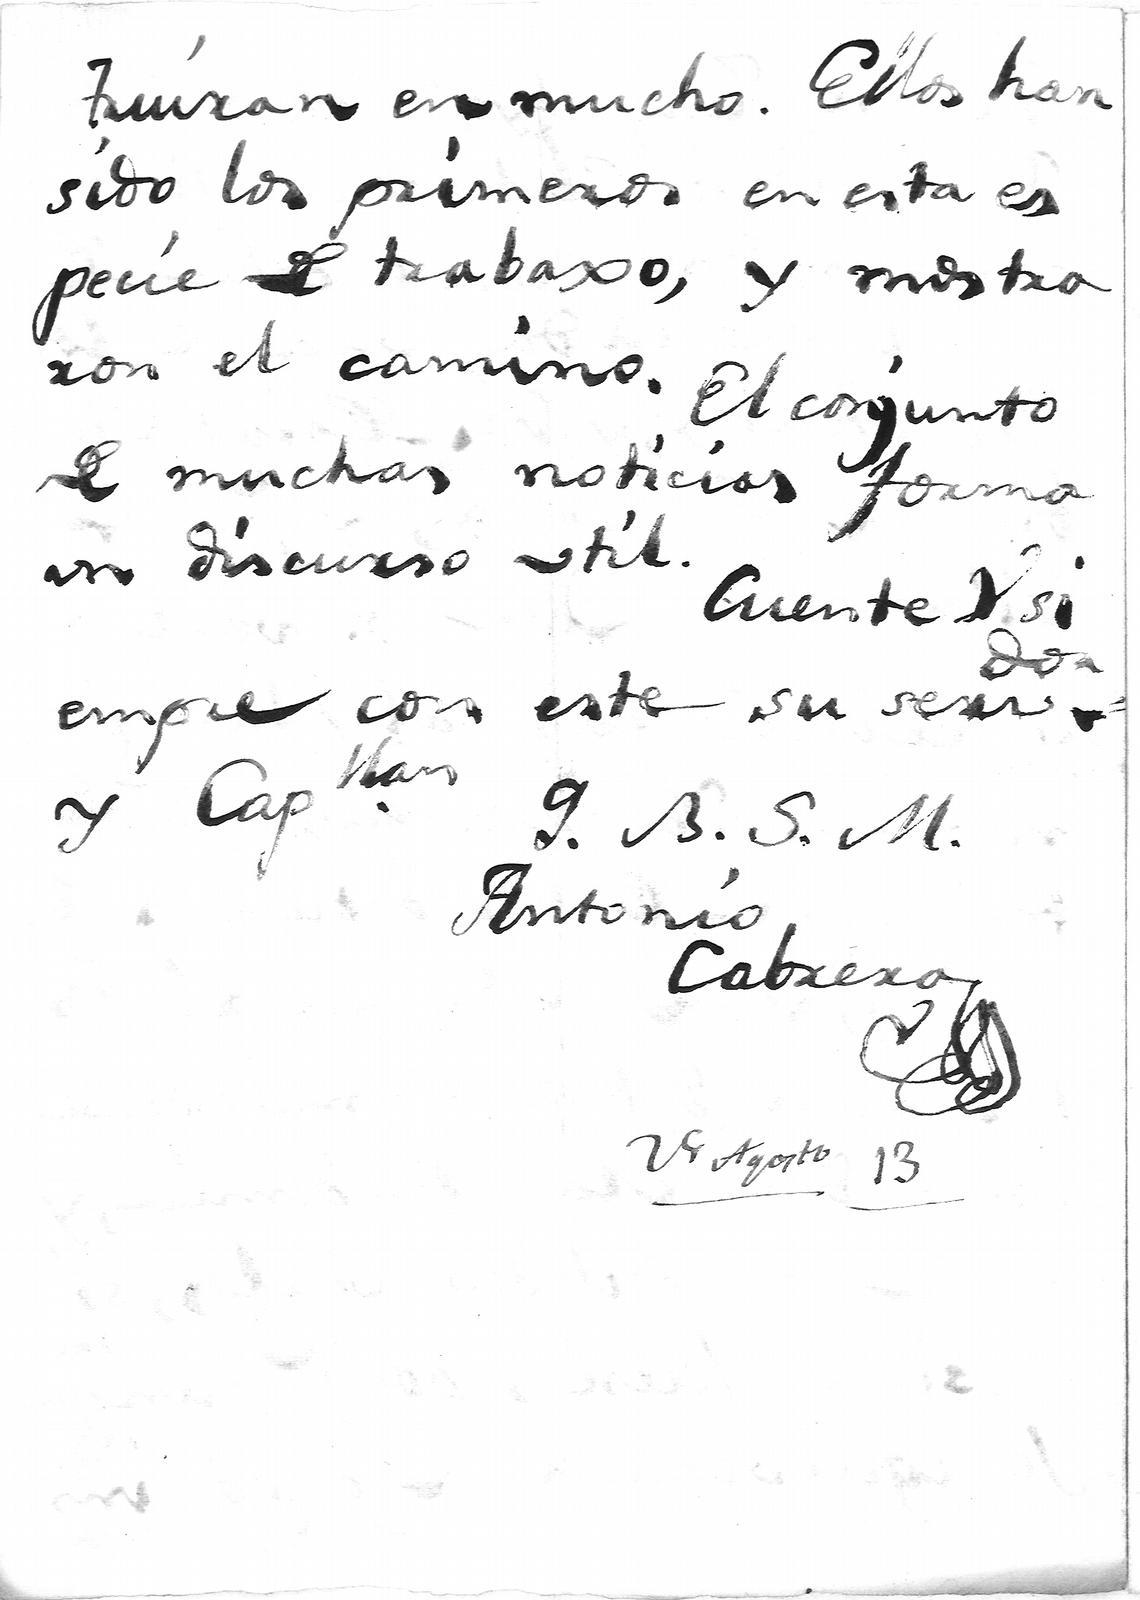 truiran en mucho. Ellos han
sido los primeros en esta es
pecie de trabaxo, y mostra
ron el camino. El conjunto
de muchas noticias forma
un discurso util.
Cuente V si
empre con este su servidor
y Cap.llan Q. B. S. M.
Antonio
Cabrera
Agosto 13